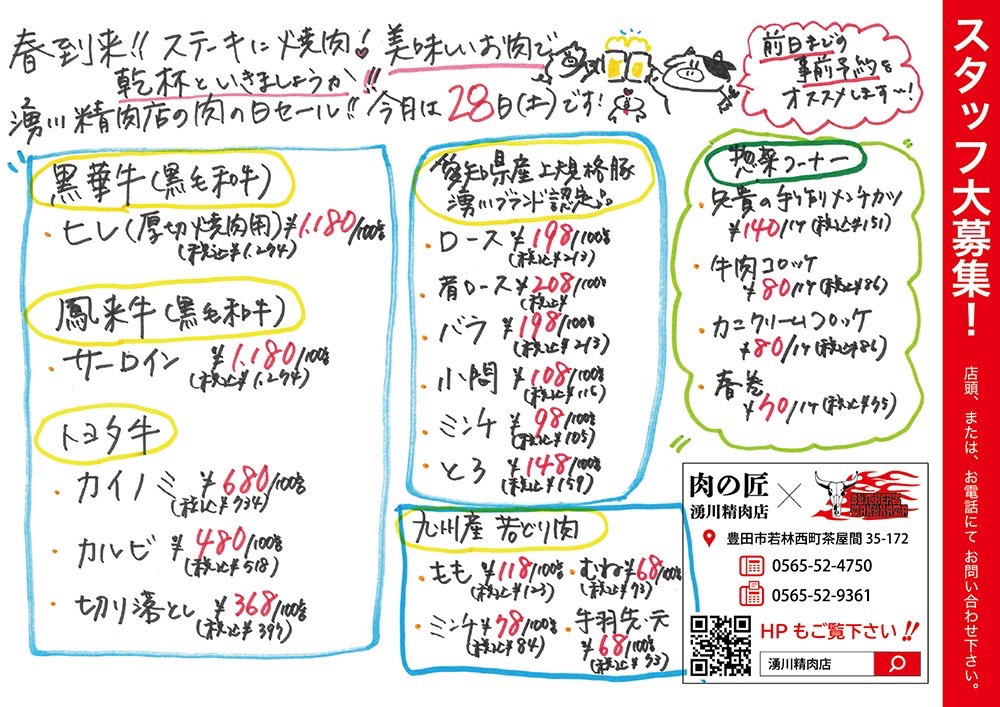 春到来!! ステーキに焼肉! 美味しいお肉で
乾杯といきましょうか!!
湧川精肉店の肉の日セール!! 今月は28日(土)です!
前日までの
事前予約を
オススメします〜!
黒華牛(黒毛和牛)
・ヒレ(厚切焼肉用)¥1.180/100g
(税込¥1.274)
鳳来牛(黒毛和牛)
・サーロイン ¥1.180/100g
(税込¥1.274)
トヨタ牛
・カイノミ ¥680/100g
(税込¥734)
・カルビ ¥480/100g
(税込¥518)
・切り落とし ¥368/100g
(税込¥397)
愛知県産上規格豚
湧川ブランド認定
・ロース ¥198/100g
(税込¥213)
・肩ロース ¥208/100g
(税込¥
・バラ ¥198/100g
(税込¥213)
・小間 ¥108/100g
(税込¥116)
・ミンチ ¥98/100g
(税込¥105)
・とろ ¥148/100g
(税込¥159)
九州産 若どり肉
・もも ¥118/100g ・むね¥68/100g
(税込¥127) (税込¥73)
・ミンチ¥78/100g ・手羽先・元
(税込¥84) ¥68/100g
(税込¥73)
惣菜コーナー
・兄貴の手作りメンチカツ
¥140/1ケ(税込¥151)
・牛肉コロッケ
¥80/1ケ(税込¥86)
・カニクリームコロッケ
¥80/1ケ(税込¥86)
・春巻
¥70/1ケ(税込¥75)
肉の匠
湧川精肉店
×
BUTCHER'S
WAKUKAWA
豊田市若林西町茶屋間 35-172
0565-52-4750
0565-52-9361
HP もご覧下さい!!
湧川精肉店
スタッフ大募集!
店頭、または、お電話にてお問い合わせ下さい。